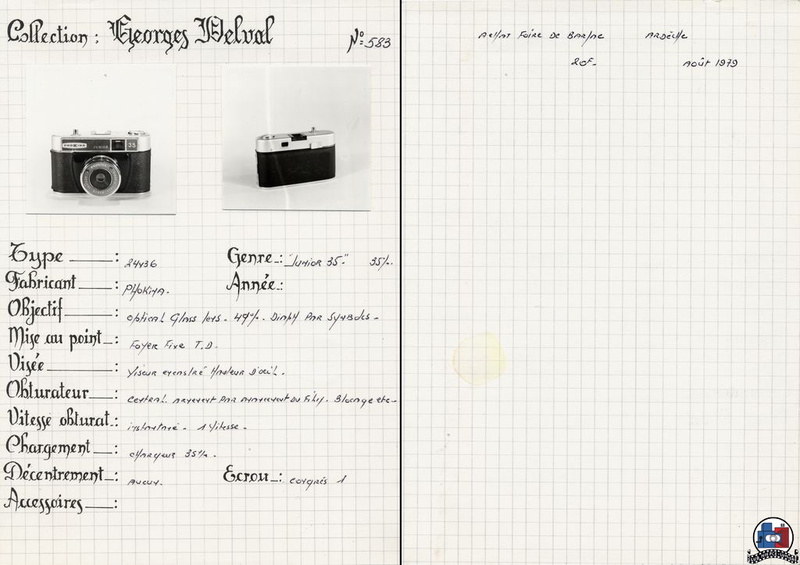 Collection : Georges Delval
N°: 583
Type : 24x36
Genre : "Junior 35" 35%.
Fabricant : PHOKINA.
Année :
Objectif : Optical Glass lens. 49%. Diaph Par Symboles -
Mise au point : Foyer Fixe T.D.
Visée : Viseur Hauteur D'oeil.
Obturateur : Central. Par Du Film.
Vitesse obturat. : instantané - 1 Vitesse.
Chargement : chargeur 35%.
Décentrement : Aucun.
Ecrou : congrès 1
Accessoires :
Achat Foire De ARDÈCHE
20F - Août 1979